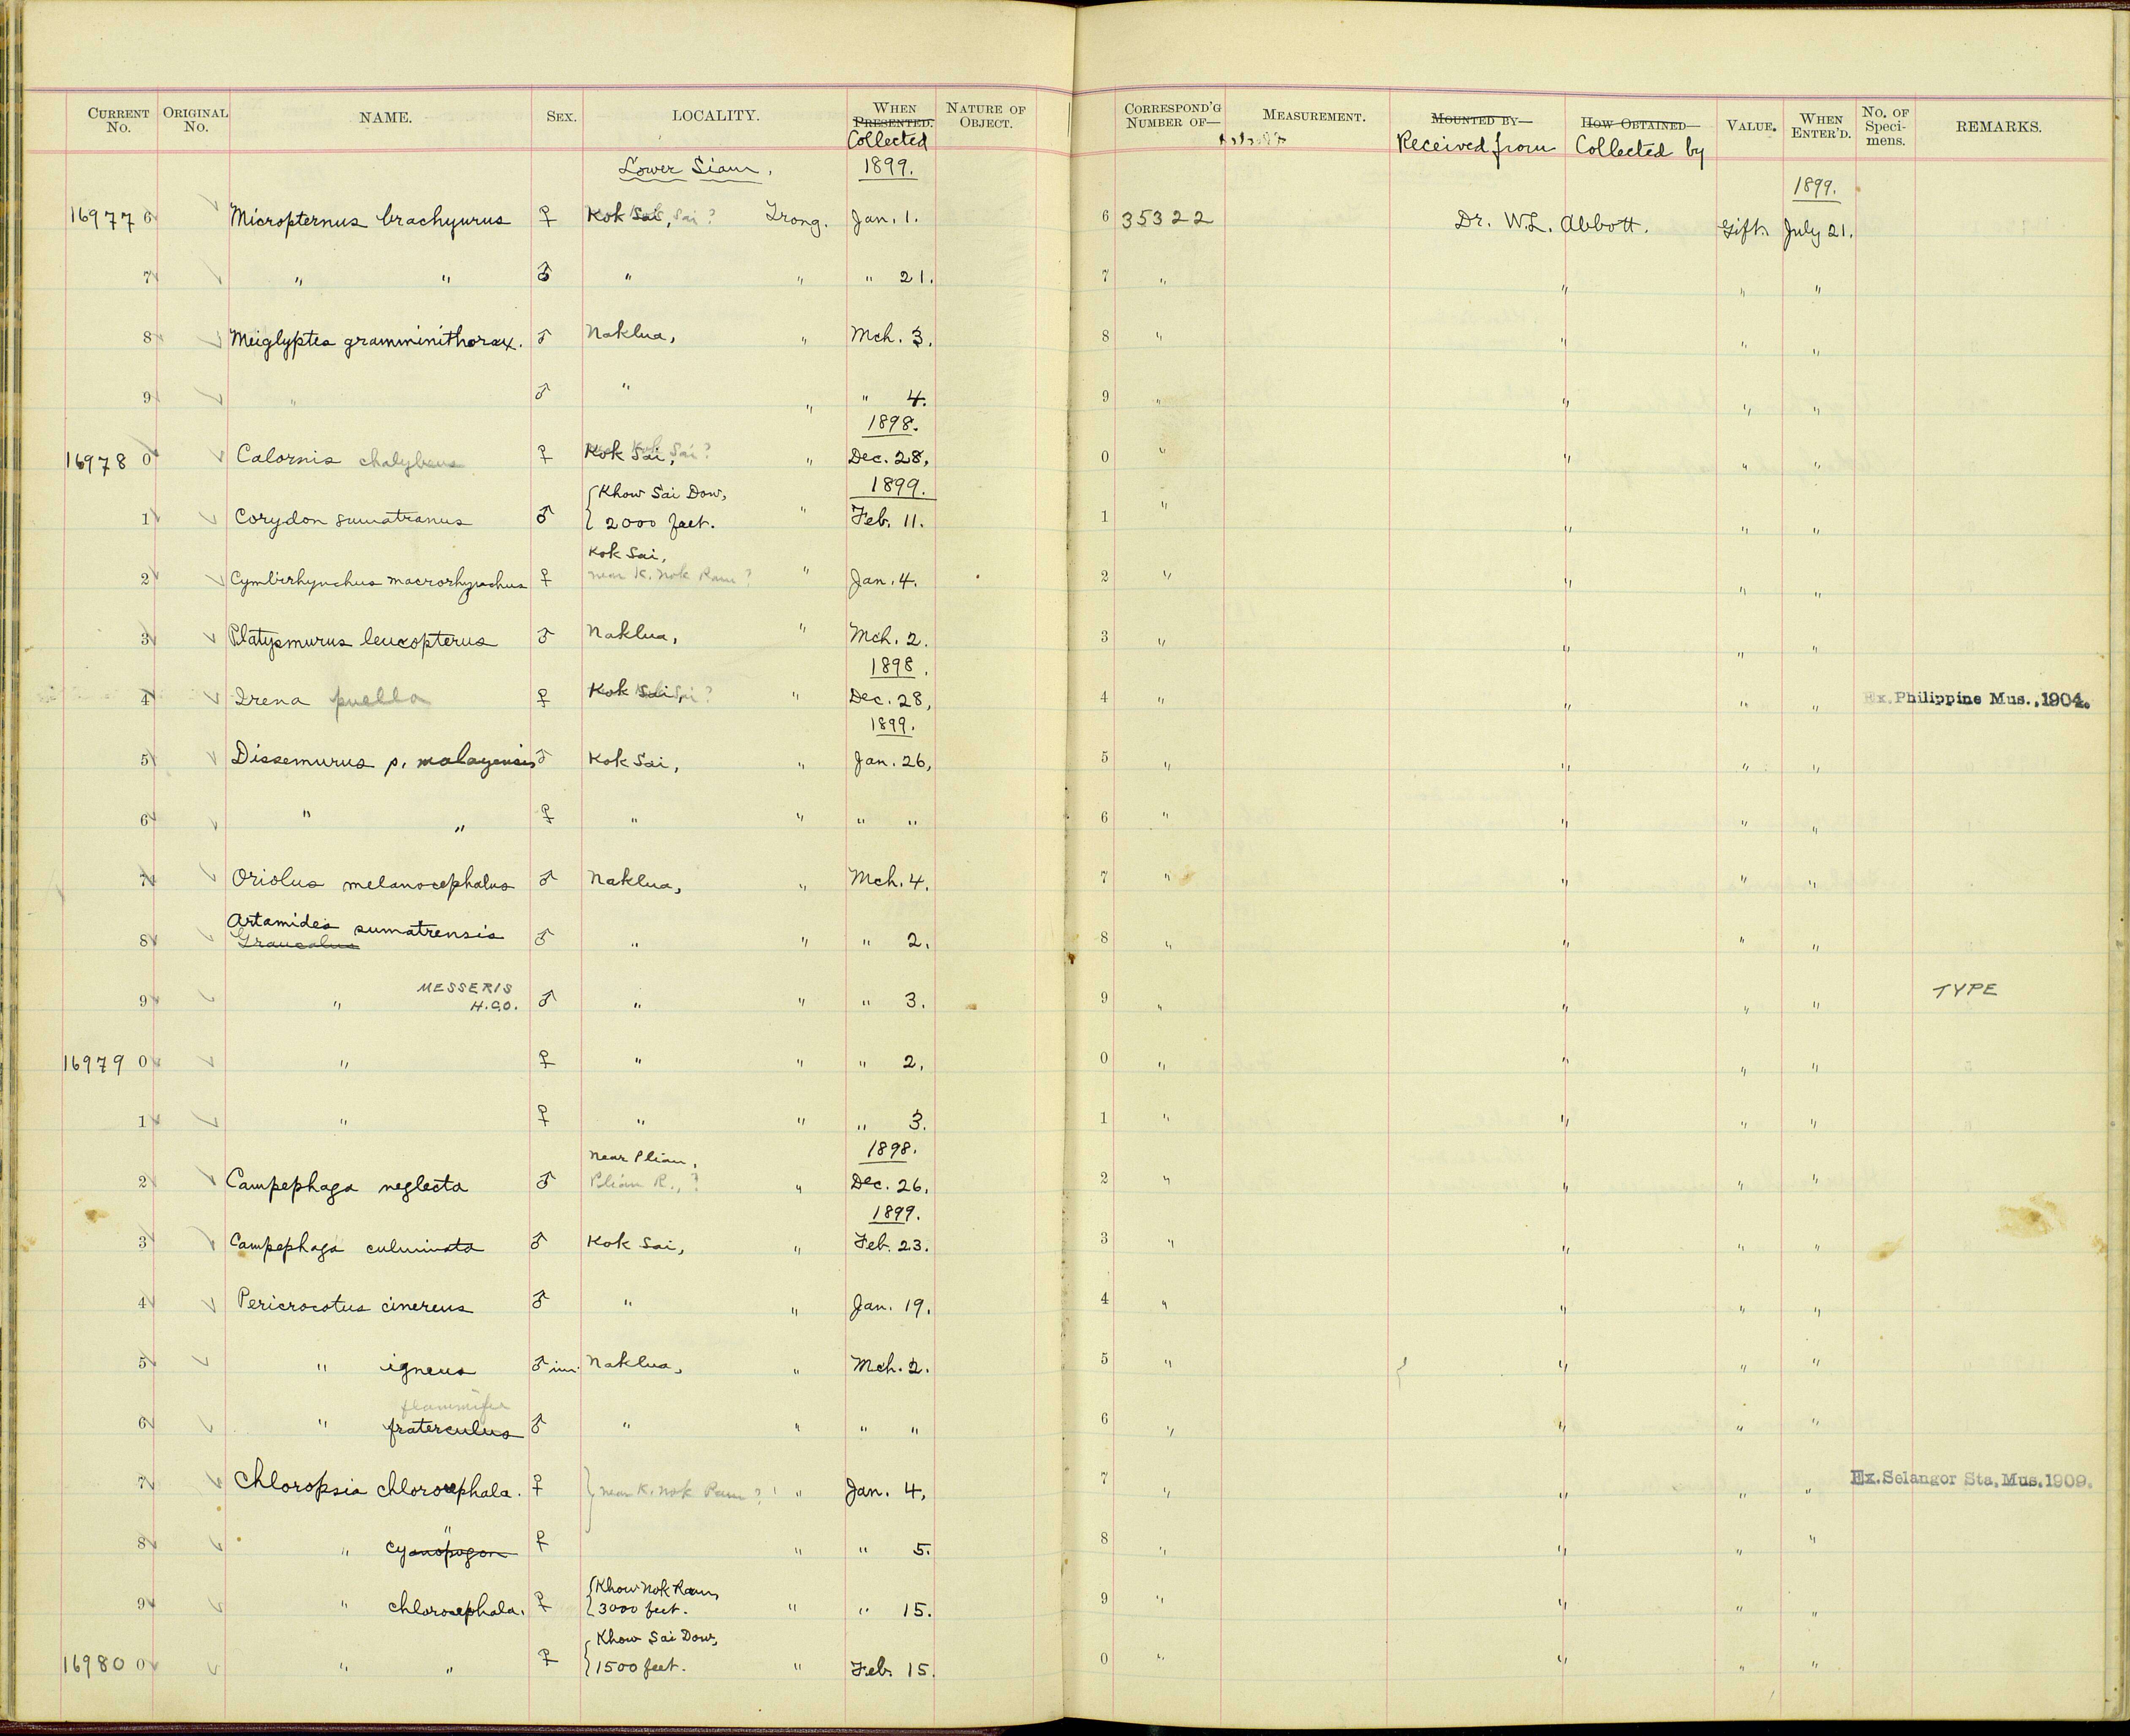 CURRENT No. ORIGINAL No. NAME. SEX. LOCALITY. WHEN PRESENTED. Collected NATURE OF OBJECT. CORRESPOND'G NUMBER OF— MEASUREMENT. MOUNTED BY— Received from HOW OBTAINED— Collected by VALUE. WHEN ENTER'D. No. OF Speci- mens. REMARKS.
Lower Siam, 1899. 1899.
169776 Micropternus brachyurus ♀ Kok Sai, Kok Sai? Trong. Jan. 1. 6 35322 Dr. W.L. Abbott. Gift. July 21.
7 " " ♂ " " " 21. 7 " " " "
8 Meiglyptes gramminithorax. ♂ Naklua, " Mch. 3. 8 " " " "
9 " ♂ " " " 4. 9 " " " "
1898.
169780 Calornis chalybeus ♀ Kok Sai, Kok Sai? " Dec. 28, 0 " " " "
1899.
1 Corydon sumatranus ♂ {Khow Sai Dow, 2000 feet. " Feb. 11. 1 " " " "
2 Cymbirhynchus macrorhynchus ♀ Kok Sai, near K. Nok Ram? " Jan. 4. 2 " " " "
3 Platysmurus leucopterus ♂ Naklua, " Mch. 2. 3 " " " "
1898.
4 Irena puella ♀ Kok Sai, Kok Sai? " Dec. 28, 4 " " " " Ex. Philippine Mus., 1904.
1899.
5 Dissemurus p. malayensis ♂ Kok Sai, " Jan. 26, 5 " " " "
6 " " ♀ " " " " 6 " " " "
7 Oriolus melanocephalus ♂ Naklua, " Mch. 4. 7 " " " "
8 Artamides Graucalus sumatrensis ♂ " " " 2. 8 " " " "
9 " MESSERIS H.C.O. ♂ " " " 3. 9 " " " " TYPE
169790 " ♀ " " " 2. 0 " " " "
1 " ♀ " " " 3. 1 " " " "
1898.
2 Campephaga neglecta ♂ near Plian, Plian R., ? " Dec. 26, 2 " " " "
1899.
3 Campephaga culminata ♂ Kok Sai, " Feb. 23. 3 " " " "
4 Pericrocotus cinereus ♂ " " Jan. 19. 4 " " " "
5 " igneus ♂ im. Naklua, " Mch. 2. 5 " " " "
6 " flammifer fraterculus ♂ " " " " 6 " " " "
7 Chloropsis chlorocephala. ♀ } near K. Nok Ram? " Jan. 4, 7 " " " " Ex. Selangor Sta. Mus. 1909.
8 " " cyanopogon ♀ " " 5. 8 " " " "
9 " chlorocephala. ♀ {Khow Nok Ram, 3000 feet. " " 15. 9 " " " "
169800 " " ♀ {Khow Sai Dow, 1500 feet. " Feb. 15. 0 " " " "